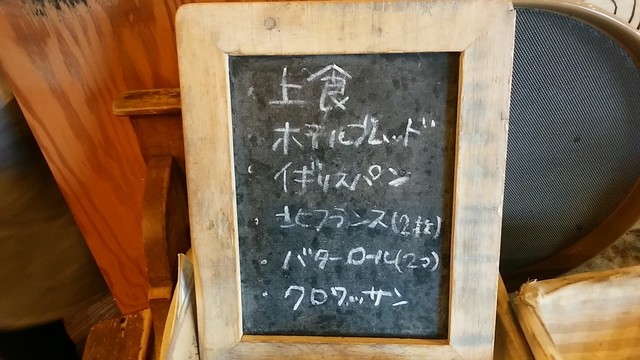 上食
ホテルブレッド
・イギリスパン
・北フランス(2枚)
・バターロール(2つ)
・クロワッサン